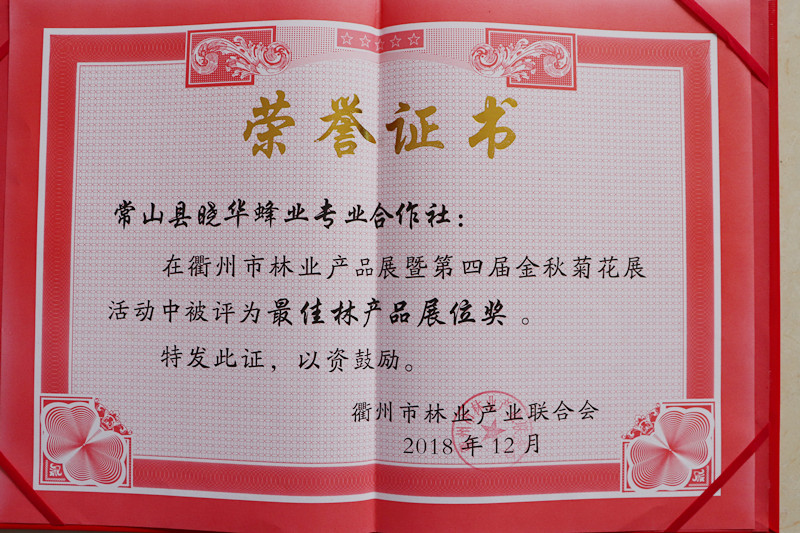 荣誉证书
常山县晓华蜂业专业合作社：
在衢州市林业产品展暨第四届金秋菊花展
活动中被评为最佳林产品展位奖 。
特发此证，以资鼓励。
衢州市林业产业联合会
2018 年 12 月